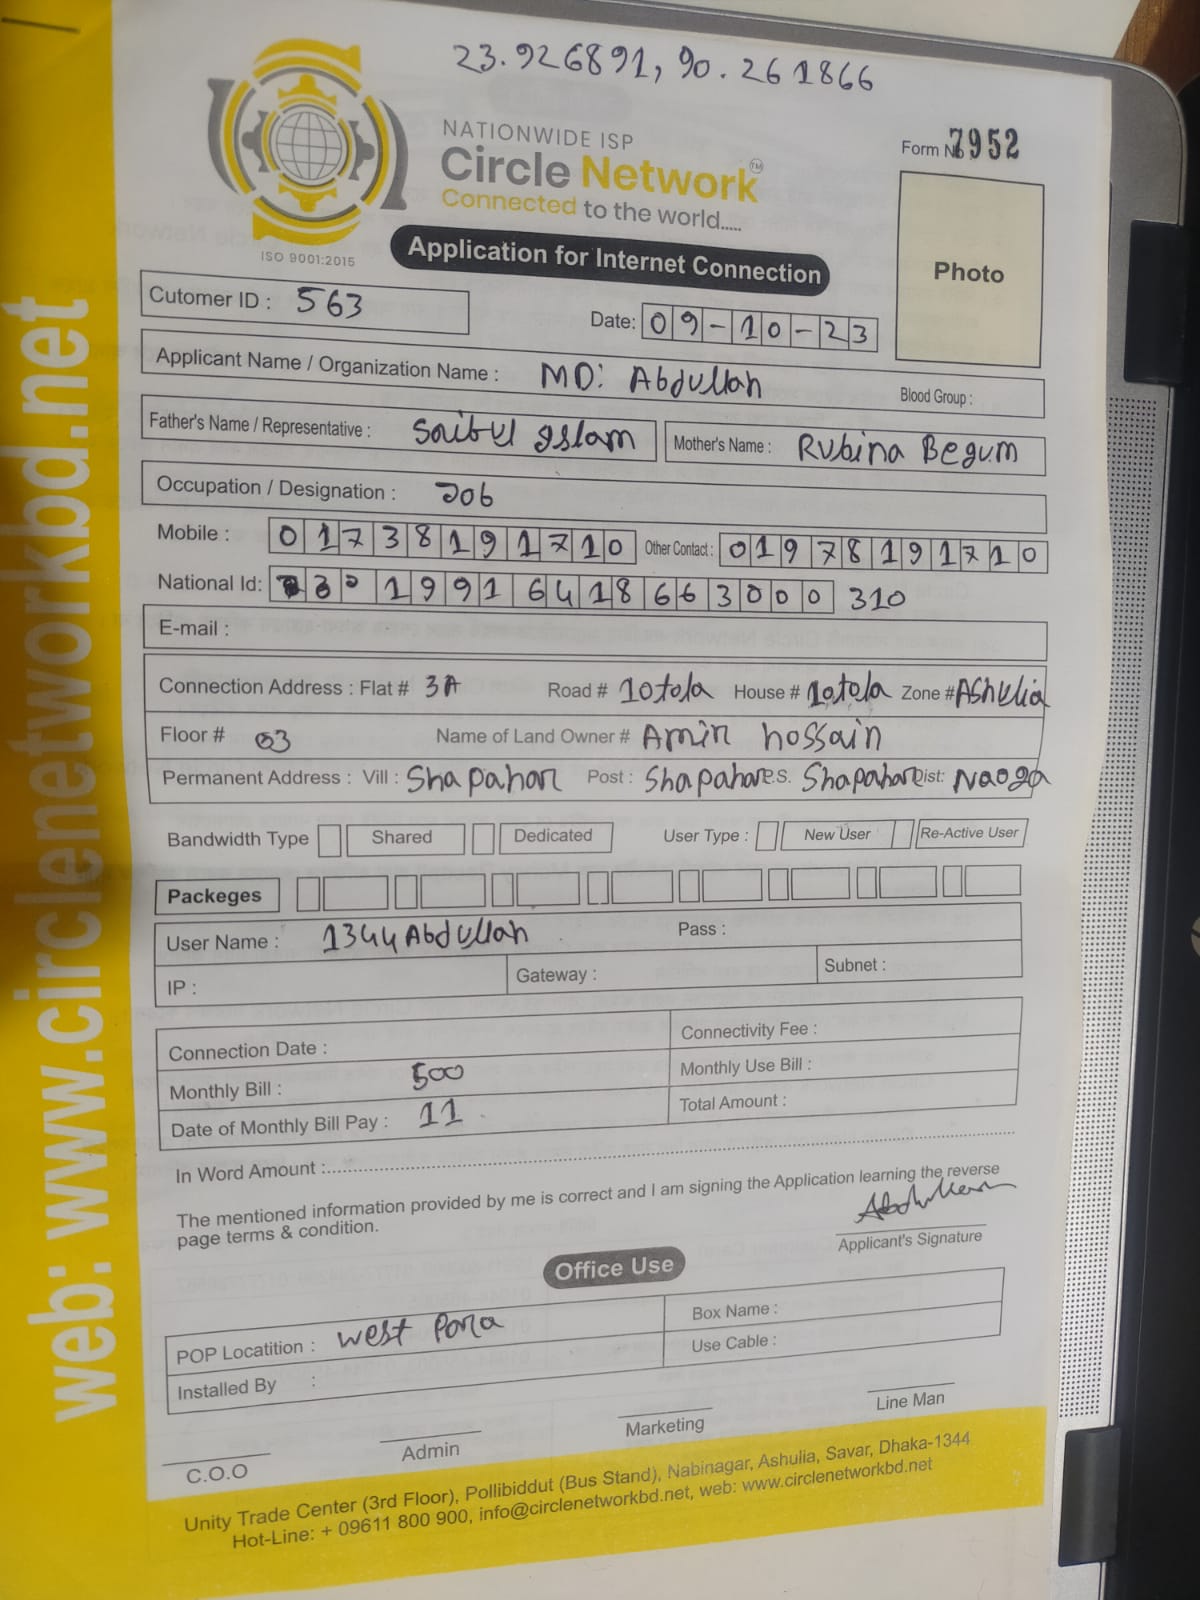 23.926891, 90.261866
NATIONWIDE ISP
Circle Network TM
Connected to the world.....
ISO 9001:2015
Form No 7952
Photo
Application for Internet Connection
Cutomer ID : 563
Date: 09-10-23
Applicant Name / Organization Name : MD: Abdullah Blood Group :
Father's Name / Representative : Saibul Islam Mother's Name : Rubina Begum
Occupation / Designation : Job
Mobile : 01738191710 Other Contact : 01978191710
National Id: 19916418663000 310
E-mail :
Connection Address : Flat # 3A Road # 10tola House # 10tola Zone # Ashulia
Floor # 03 Name of Land Owner # Amir hossain
Permanent Address : Vill : Shapahar Post : Shapahar P.S. Shapahar Dist: Naoga
Bandwidth Type Shared Dedicated User Type : New User Re-Active User
Packeges
User Name : 1344Abdullah Pass :
IP : Gateway : Subnet :
Connection Date : Connectivity Fee :
Monthly Bill : 500 Monthly Use Bill :
Date of Monthly Bill Pay : 11 Total Amount :
In Word Amount :
The mentioned information provided by me is correct and I am signing the Application learning the reverse
page terms & condition.
Abdullah
Applicant's Signature
Office Use
POP Locatition : west Para Box Name :
Installed By : Use Cable :
C.O.O Admin Marketing Line Man
Unity Trade Center (3rd Floor), Pollibiddut (Bus Stand), Nabinagar, Ashulia, Savar, Dhaka-1344
Hot-Line: + 09611 800 900, info@circlenetworkbd.net, web: www.circlenetworkbd.net
web: www.circlenetworkbd.net